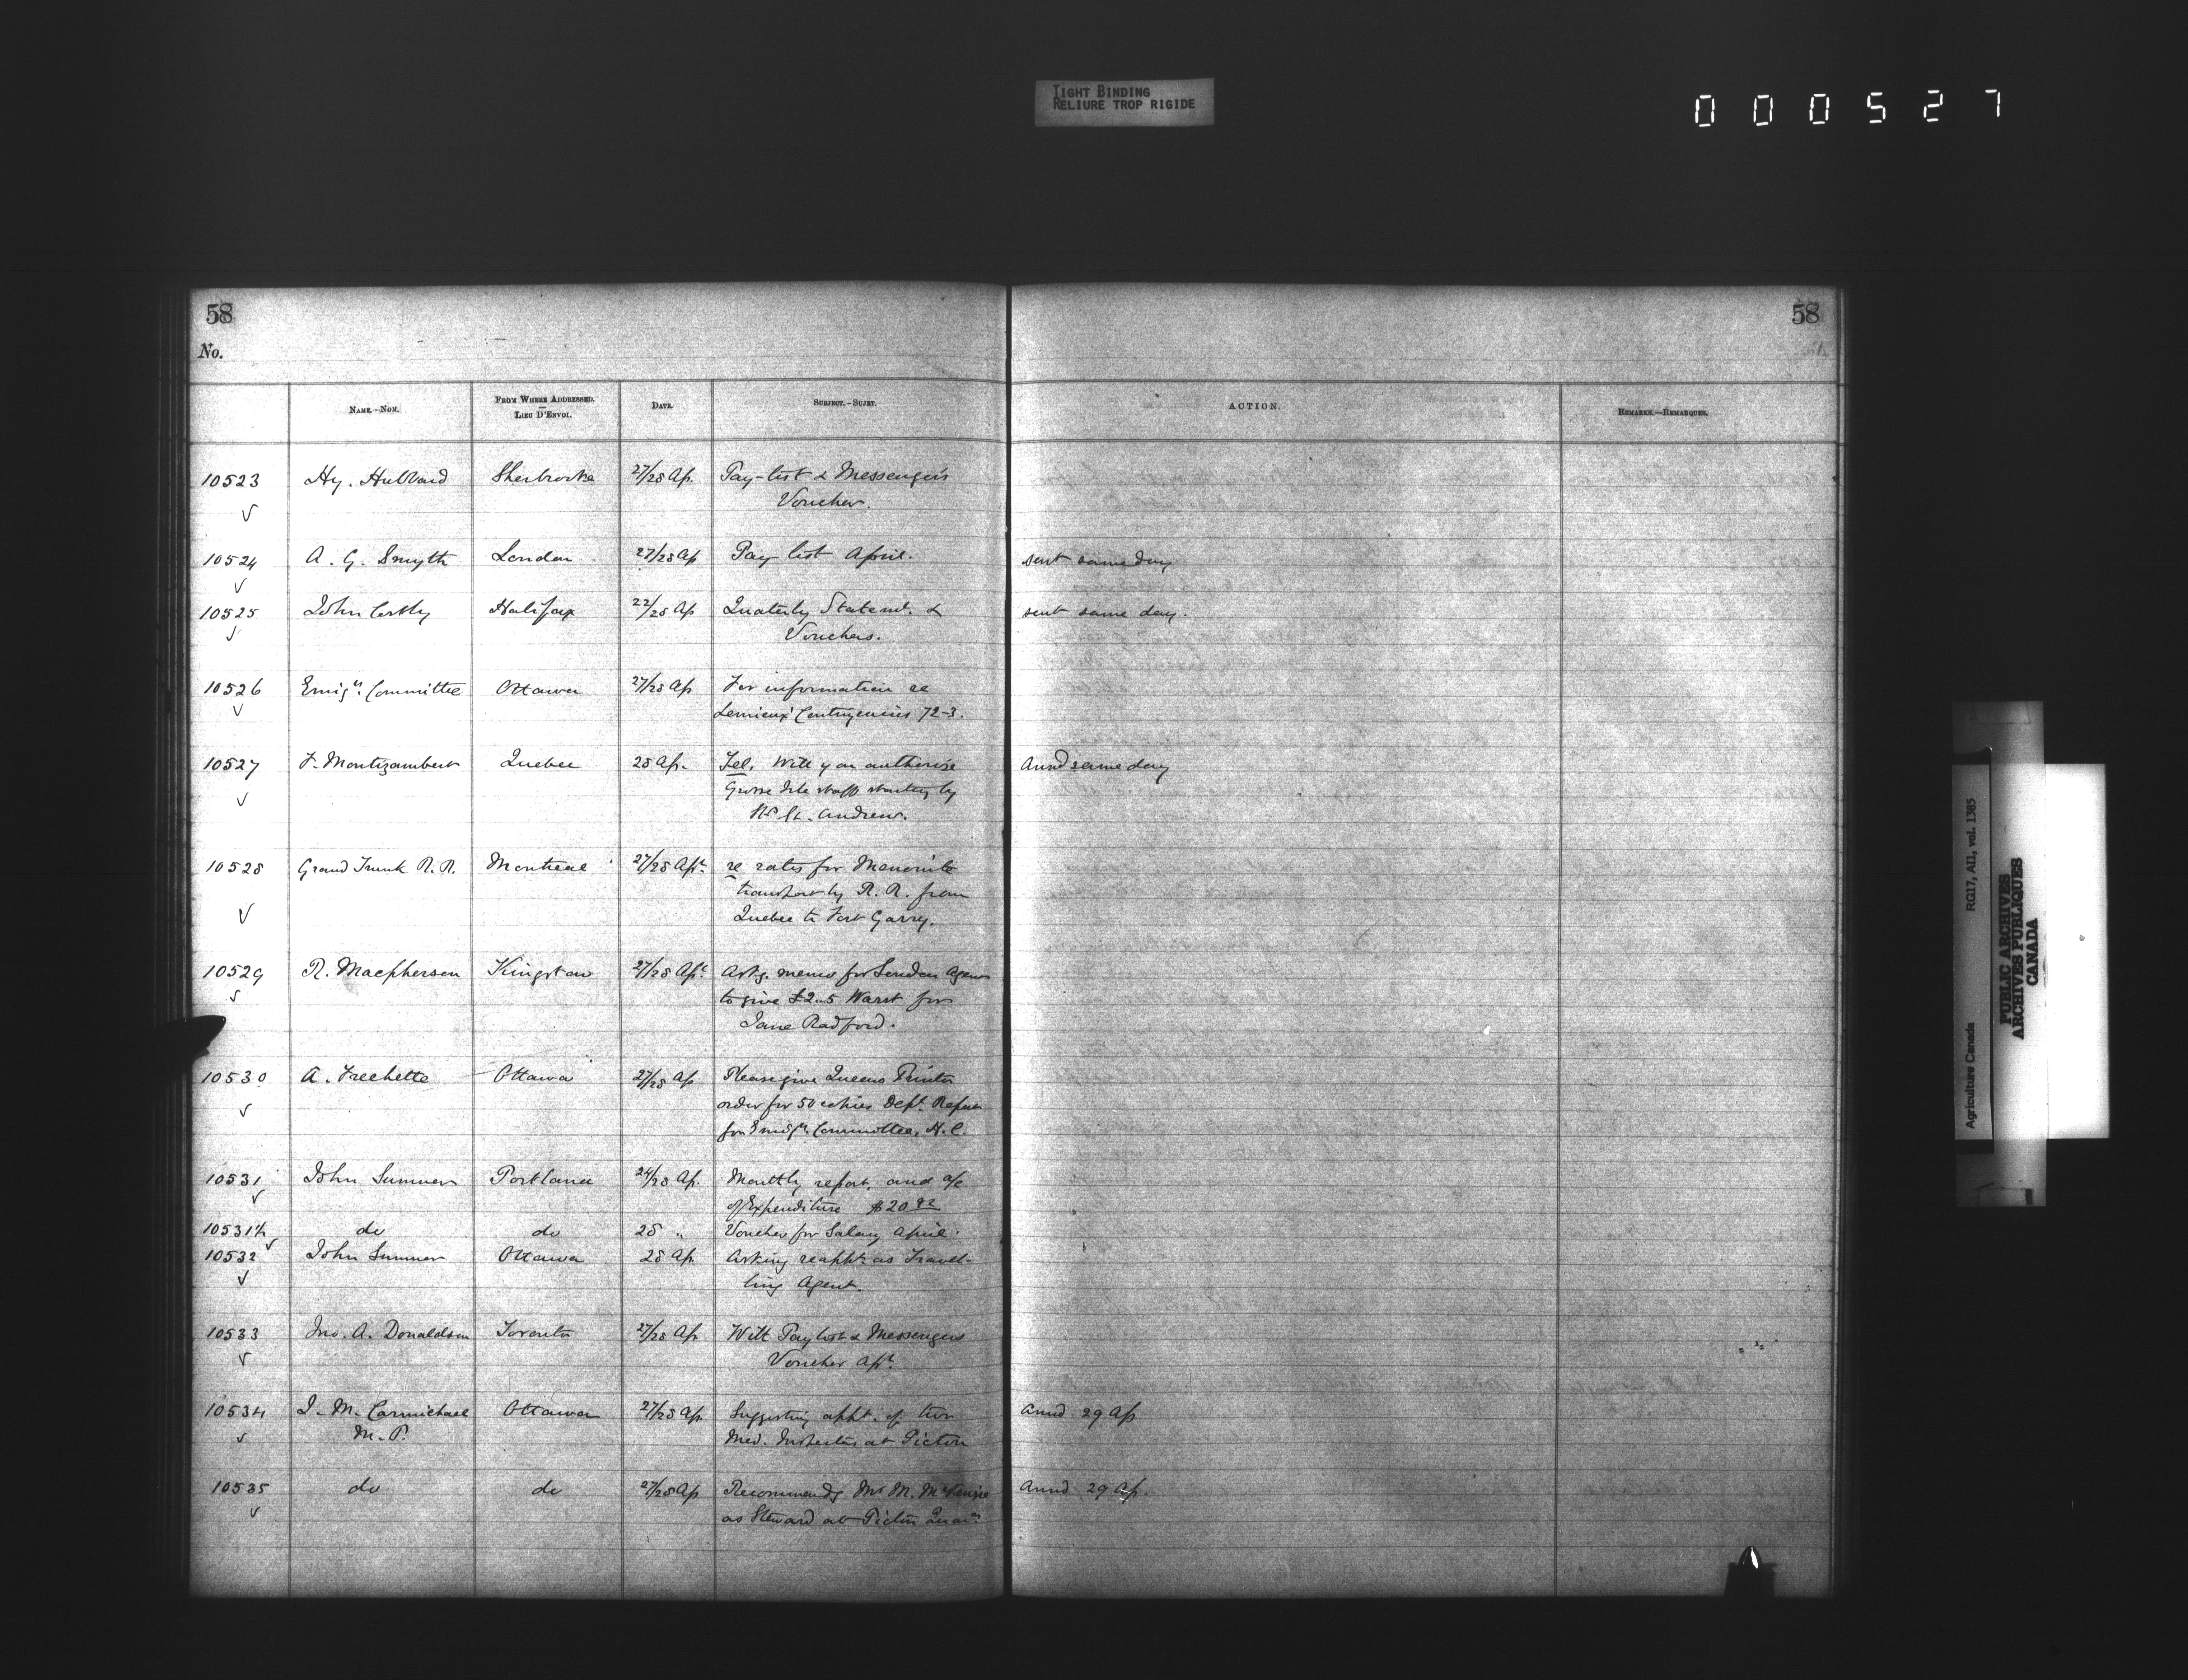 TIGHT BINDING
RELIURE TROP RIGIDE
000527
58
58
No.
NAME.—NOM.
FROM WHERE ADDRESSED.
LIEU D'ENVOI.
DATE.
SUBJECT.—SUJET.
ACTION.
REMARKS.—REMARQUES.
10523 Hy. Hubbard Sherbrooke 27/28 Ap. Pay-list & Messenger's
Voucher.
10524 A. G. Smyth London 27/28 Ap Pay list April. sent same day
10525 John Halifax 22/28 Ap Quaterly Statemt. &
sent same day.
Vouchers.
10526 Emign. Committee Ottawa 27/28 Ap For information re
Lemieux' Contingencies 72-3.
10527 F. Montizambert Quebec 28 Ap. Tel. Will you authorise
Ansd same day
Grosse Isle staff starting by
St. Andrew.
10528 Grand Trunk R. R. Montreal 27/28 Apl. re rates for Menonite
transport by R. R. from
Quebec to Fort Garry.
10529 R. Macpherson Kingston 27/28 Apl. Askg. memo for London Agent
to give £2..5 Warrt for
Jane Radford.
10530 A. Frechette Ottawa 27/28 Ap Please give Queens Printer
order for 50 copies Dept. Report
for Emign. Committee, H. C.
10531 John Sumner Portland 24/28 Ap. Monthly report, and a/c
of Expenditure $20
10531½ do do 28 " Voucher for Salary April.
10532 John Sumner Ottawa 28 Ap. Asking reappt. as Travel-
ling Agent.
10533 Jno. A. Donaldson Toronto 27/28 Ap With Pay list & Messengers
Voucher Apl.
10534 J. M. Carmichael Ottawa 27/28 Ap. Suggesting appt. of two
Ansd 29 Ap
M. P. Med. Inspectors at Pictou
10535 do do 27/28 Ap Recommends Mr M. McKenzie
Ansd 29 Ap.
as Steward at Pictou Quarn.
Agriculture Canada RG17, AII, vol. 1385
PUBLIC ARCHIVES
ARCHIVES PUBLIQUES
CANADA